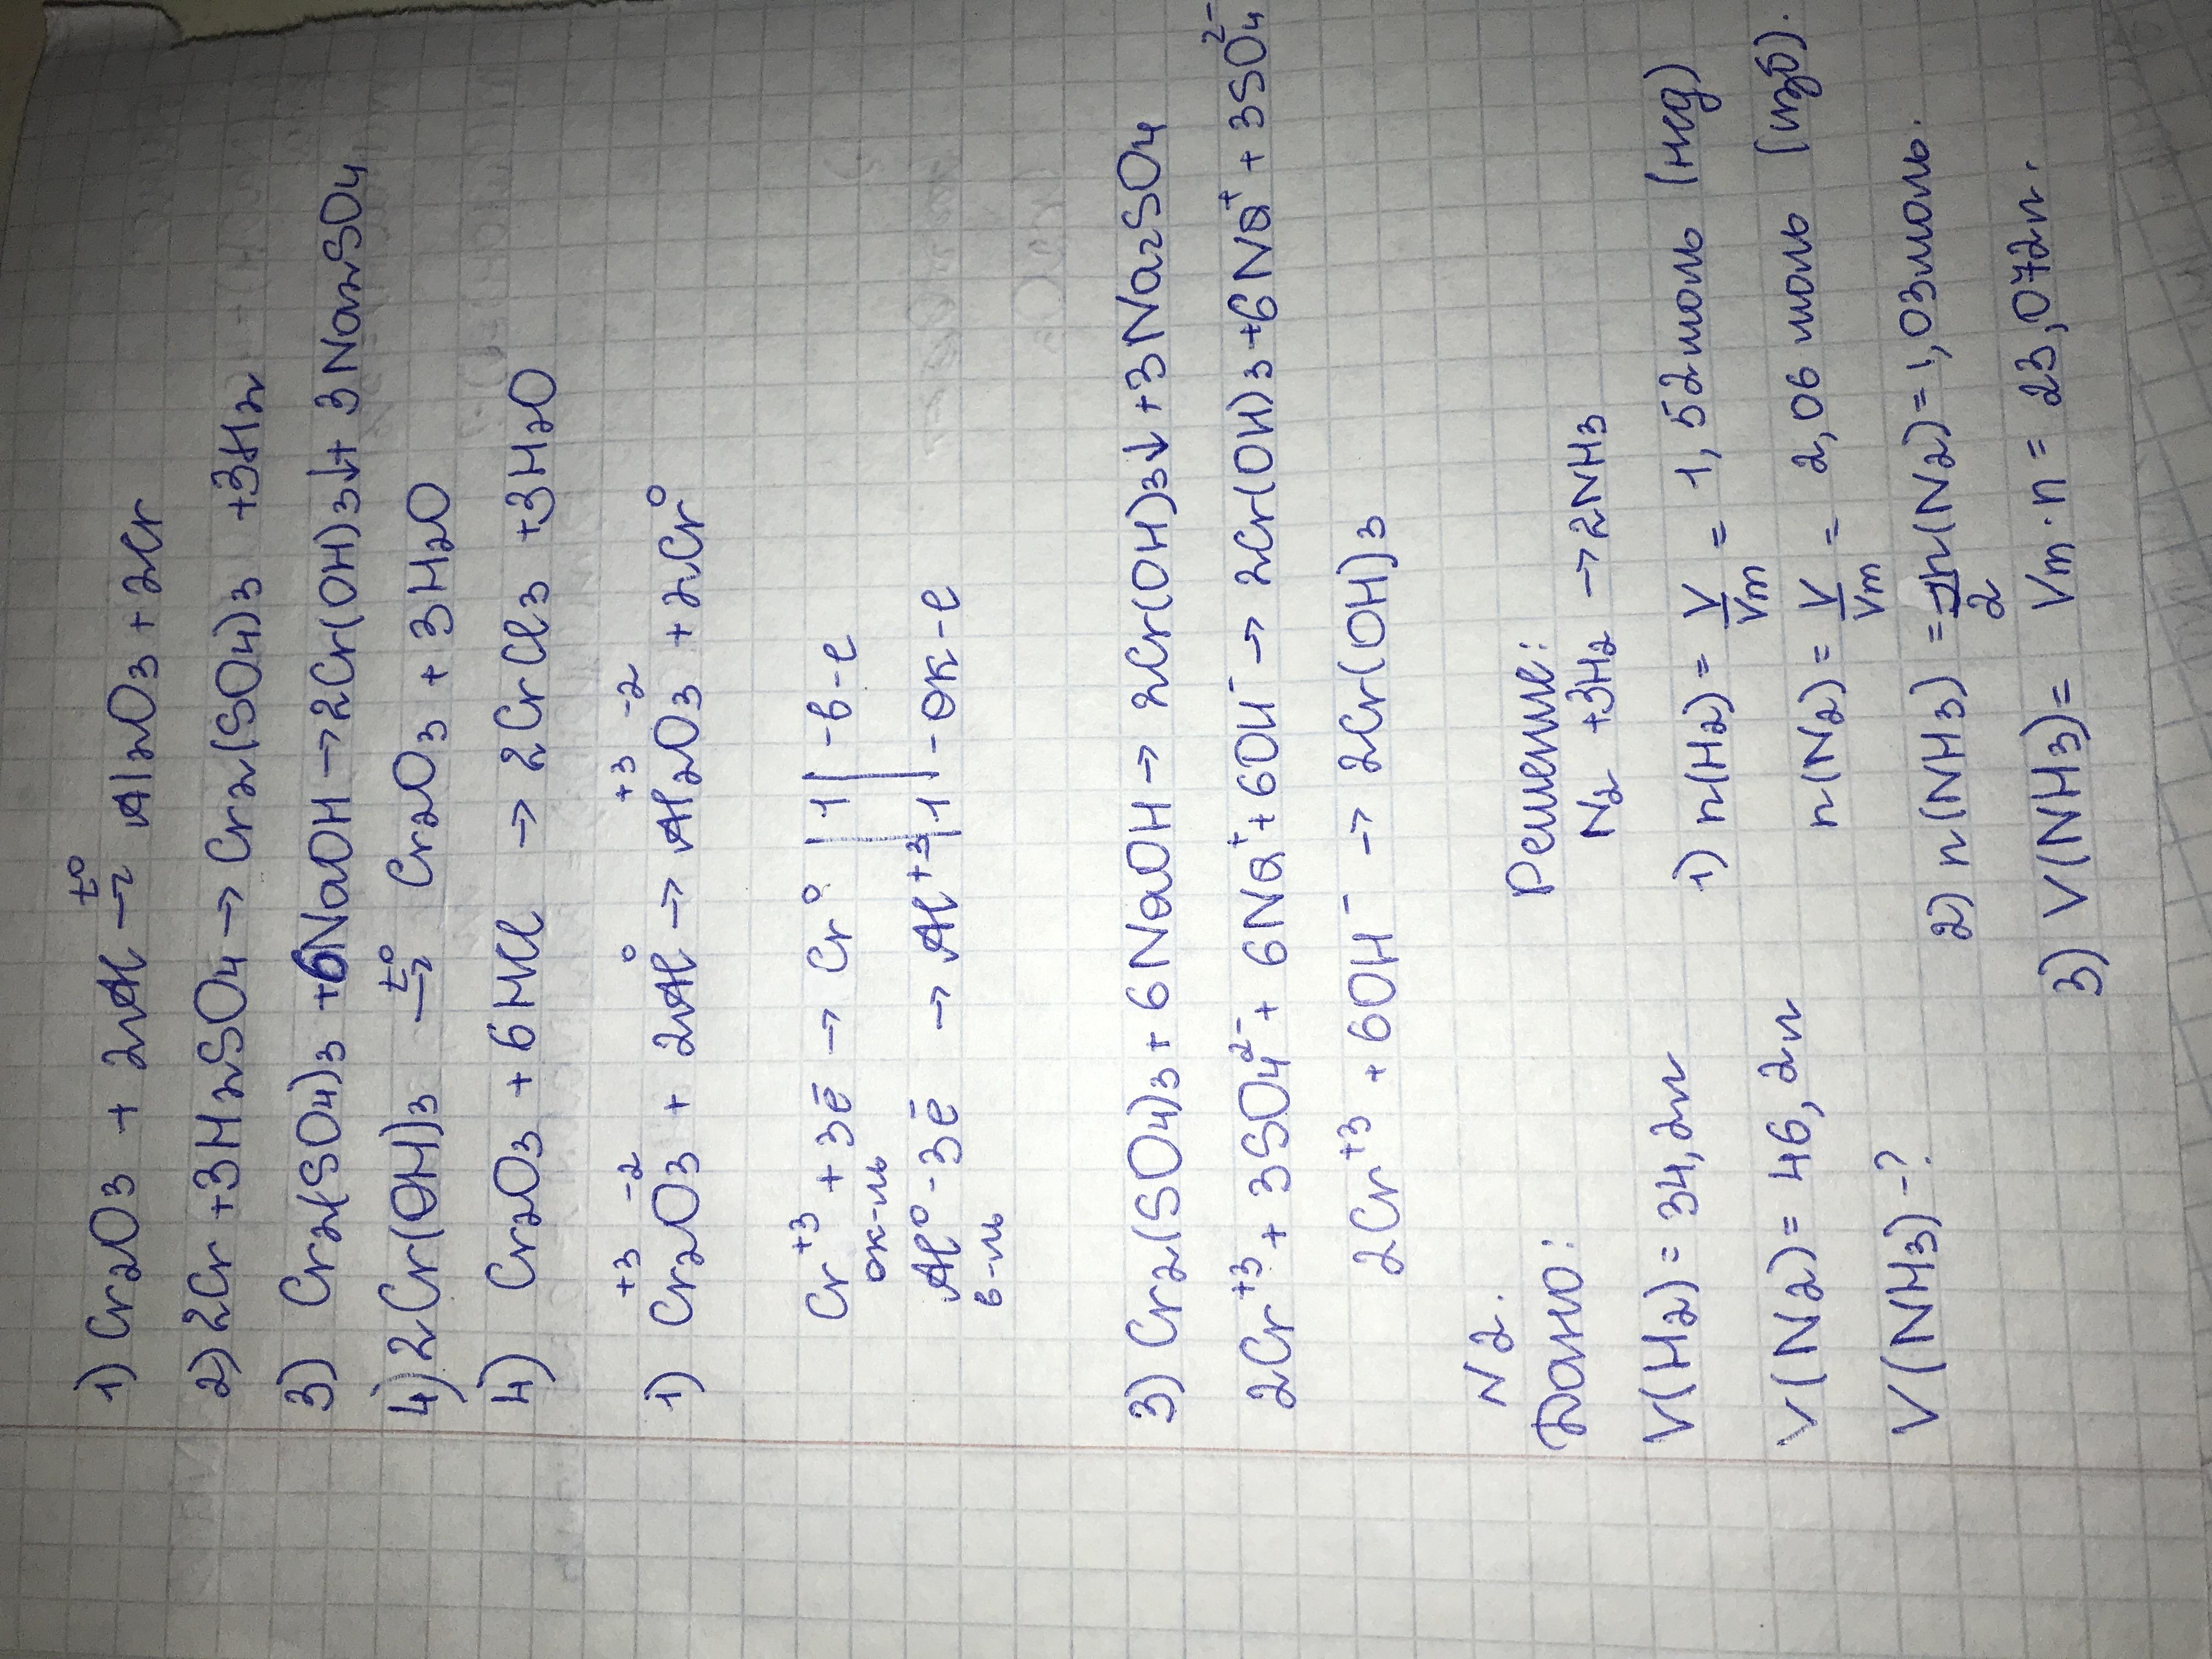 1) Cr2O3 + 2Al t° → Al2O3 + 2Cr
2) 2Cr + 3H2SO4 → Cr2(SO4)3 + 3H2
3) Cr2(SO4)3 + 6NaOH → 2Cr(OH)3↓ + 3Na2SO4
4) 2Cr(OH)3 t° → Cr2O3 + 3H2O
4) Cr2O3 + 6HCl → 2CrCl3 + 3H2O
+3 -2 0 +3 -2 0
1) Cr2O3 + 2Al → Al2O3 + 2Cr
Cr+3 + 3ē → Cr0 | 1 | -в-е
ок-ль
Al0 - 3ē → Al+3 | 1 | -ок-е
в-ль
3) Cr2(SO4)3 + 6NaOH → 2Cr(OH)3↓ + 3Na2SO4
2Cr+3 + 3SO4 2- + 6Na+ + 6OH- → 2Cr(OH)3 + 6Na+ + 3SO4 2-
2Cr+3 + 6OH- → 2Cr(OH)3
N2.
Дано: Решение:
N2 + 3H2 → 2NH3
V(H2) = 34,2л 1) n(H2) = V/Vm = 1,52моль (нед)
V(N2) = 46,2л n(N2) = V/Vm = 2,06 моль (изб).
V(NH3) -? 2) n(NH3) = 1/2 n(N2) = 1,03моль.
3) V(NH3) = Vm · n = 23,072л.